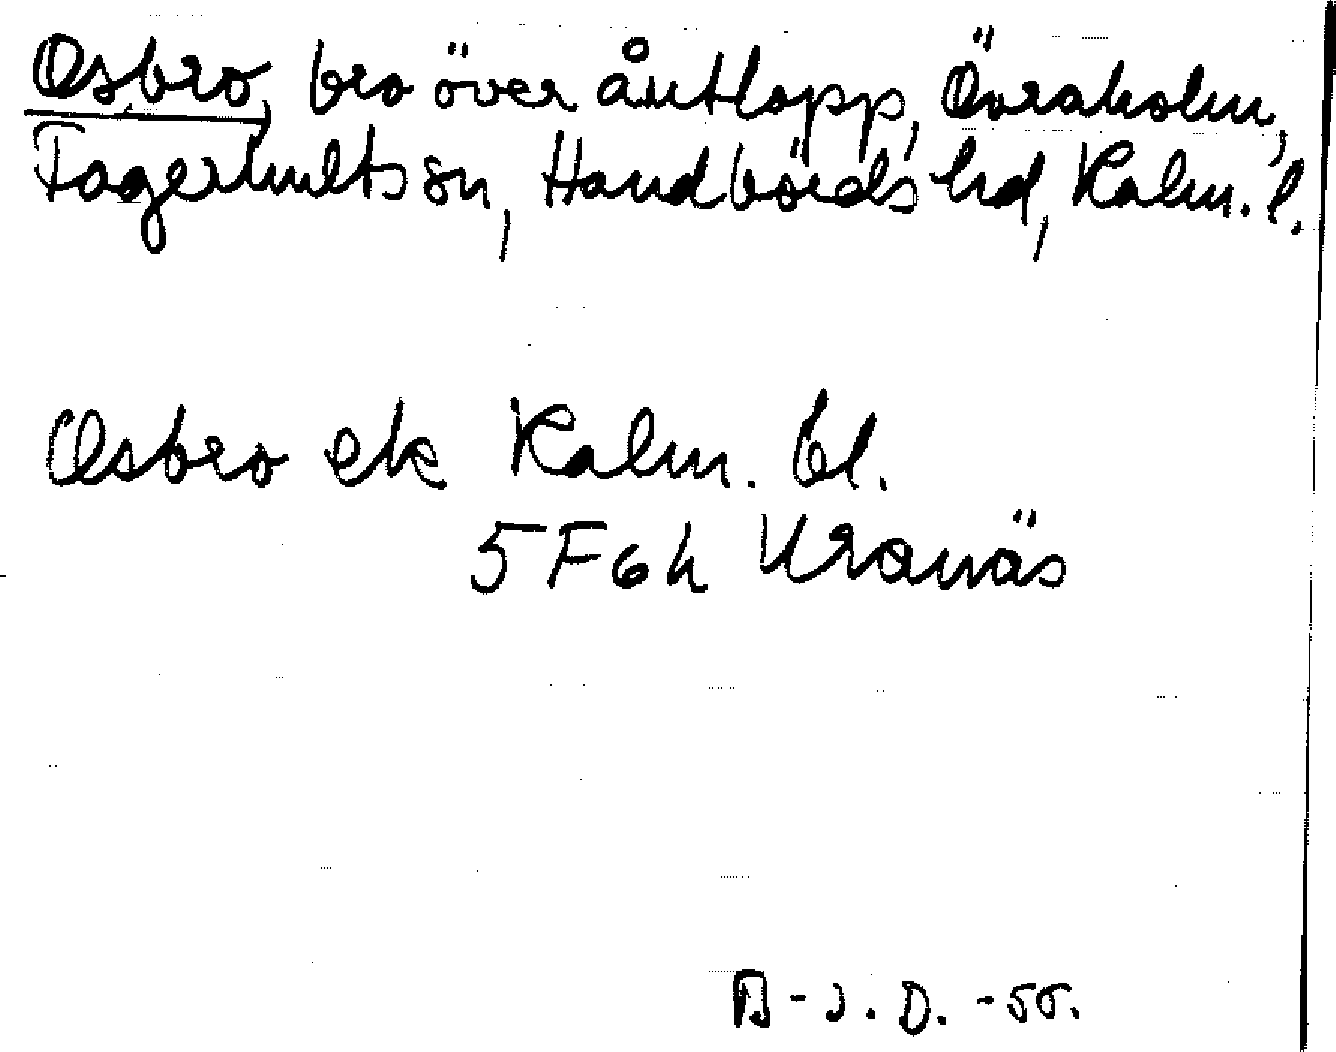 Osbro, bro över åutlopp, Övraholm,
Fagerhults sn, Handbörds hd, Kalm. l.
Osbro ek Kalm. bl.
5 F 6 h Kranäs
B-J. D. -55.